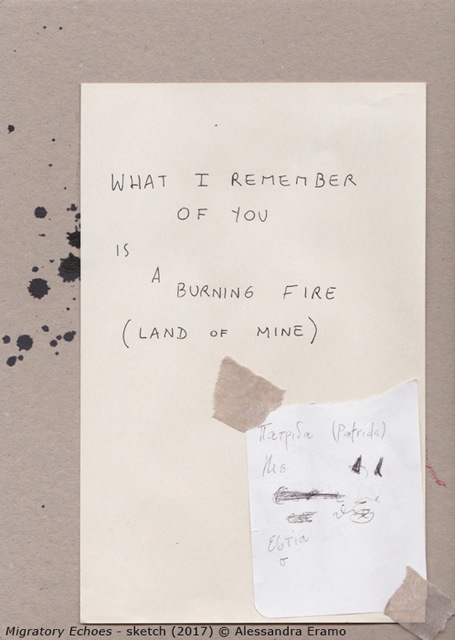 WHAT I REMEMBER
OF YOU
IS
A
BURNING FIRE
(LAND OF MINE)
Πατρίδα (Patrida)
Εστία
σ
Migratory Echoes - sketch (2017) © Alessandra Eramo